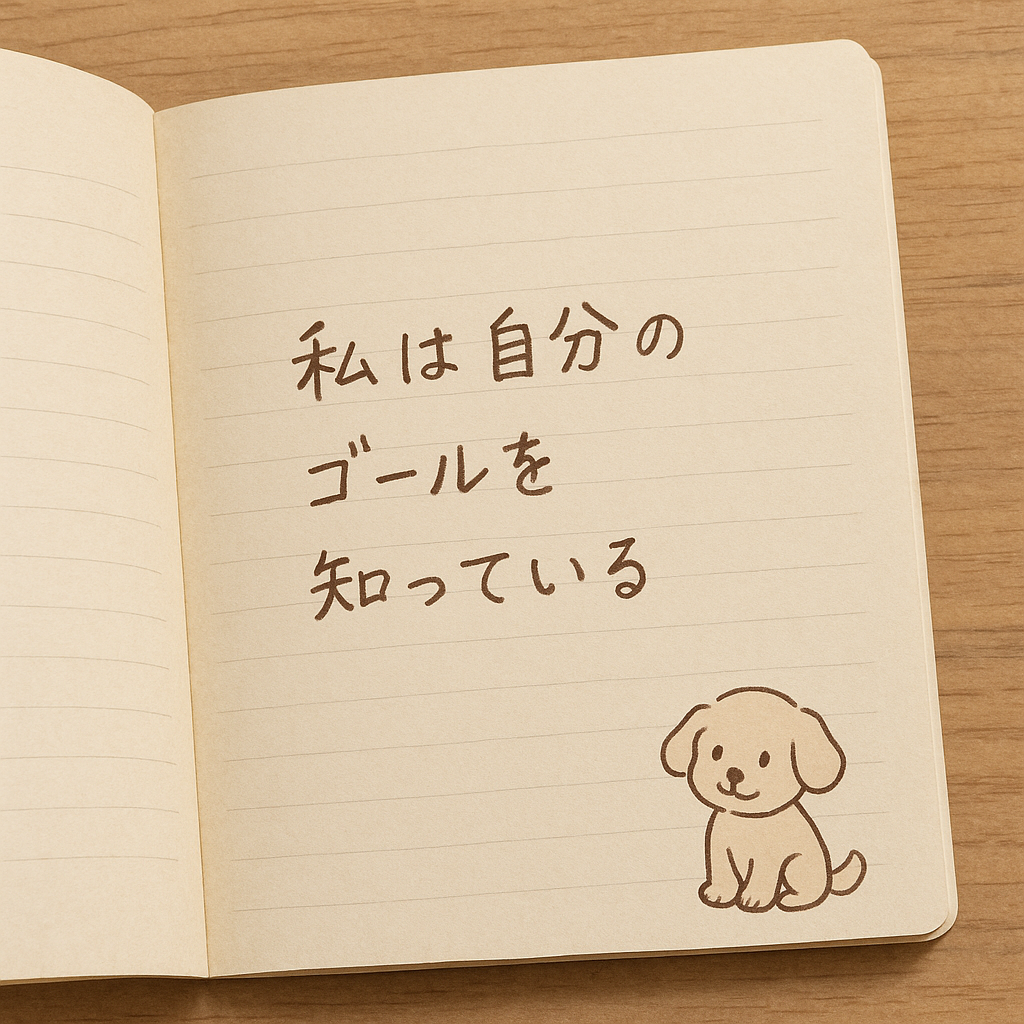 私は自分の
ゴールを
知っている